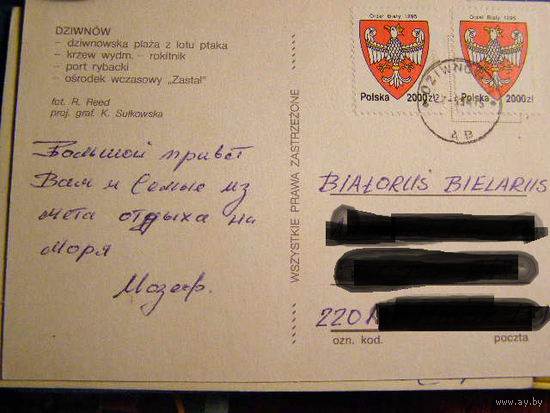 DZIWNÓW
– dziwnowska plaża z lotu ptaka
– krzew wydm. – rokitnik
– port rybacki
– ośrodek wczasowy „Zastal”
fot. R. Reed
proj. graf. K. Sułkowska
Orzeł Biały 1295
Polska 2000zł
Orzeł Biały 1295
Polska 2000zł
DZIWNÓW
WSZYSTKIE PRAWA ZASTRZEŻONE
Большой привет
Вам и Семье из
мета отдыха на
моря
Мозеф.
BIAŁORUŚ BIELARUS
220
ozn. kod.
poczta
www.ay.by